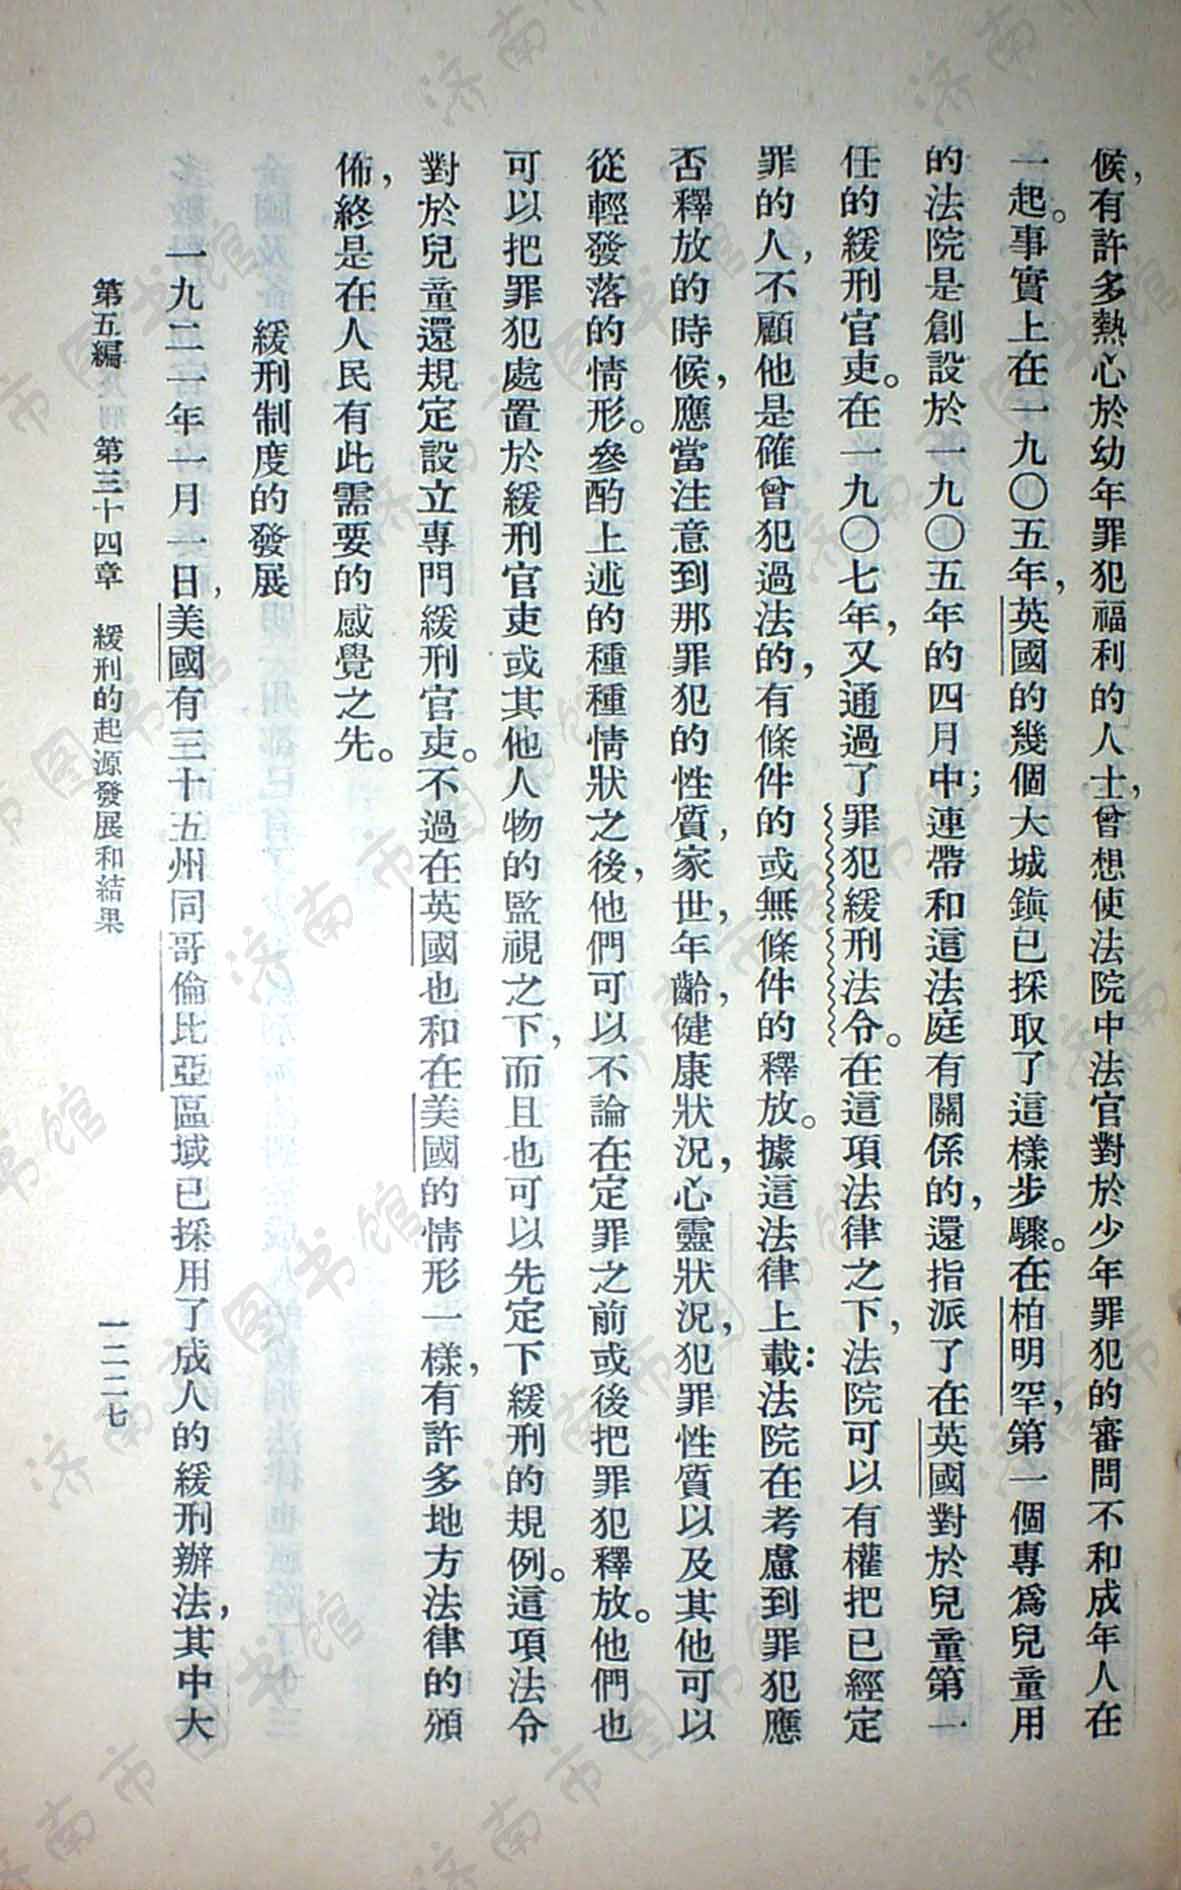 候，有許多熱心於幼年罪犯福利的人士，曾想使法院中法官對於少年罪犯的審問不和成年人在
一起。事實上在一九〇五年，英國的幾個大城鎮已採取了這樣步驟。在柏明罕，第一個專爲兒童用
的法院是創設於一九〇五年的四月中；連帶和這法庭有關係的，還指派了在英國對於兒童第一
任的緩刑官吏。在一九〇七年，又通過了罪犯緩刑法令。在這項法律之下，法院可以有權把已經定
罪的人，不顧他是確曾犯過法的，有條件的或無條件的釋放。據這法律上載：法院在考慮到罪犯應
否釋放的時候，應當注意到那罪犯的性質，家世，年齡，健康狀況，心靈狀況，犯罪性質以及其他可以
從輕發落的情形。參酌上述的種種情狀之後，他們可以不論在定罪之前或後把罪犯釋放。他們也
可以把罪犯處置於緩刑官吏或其他人物的監視之下，而且也可以先定下緩刑的規例。這項法令
對於兒童還規定設立專門緩刑官吏。不過在英國也和在美國的情形一樣，有許多地方法律的頒
佈，終是在人民有此需要的感覺之先。
緩刑制度的發展
一九二一年一月一日，美國有三十五州同哥倫比亞區域已採用了成人的緩刑辦法，其中大
第五編 第三十四章 緩刑的起源發展和結果 一二二七
济南市图书馆